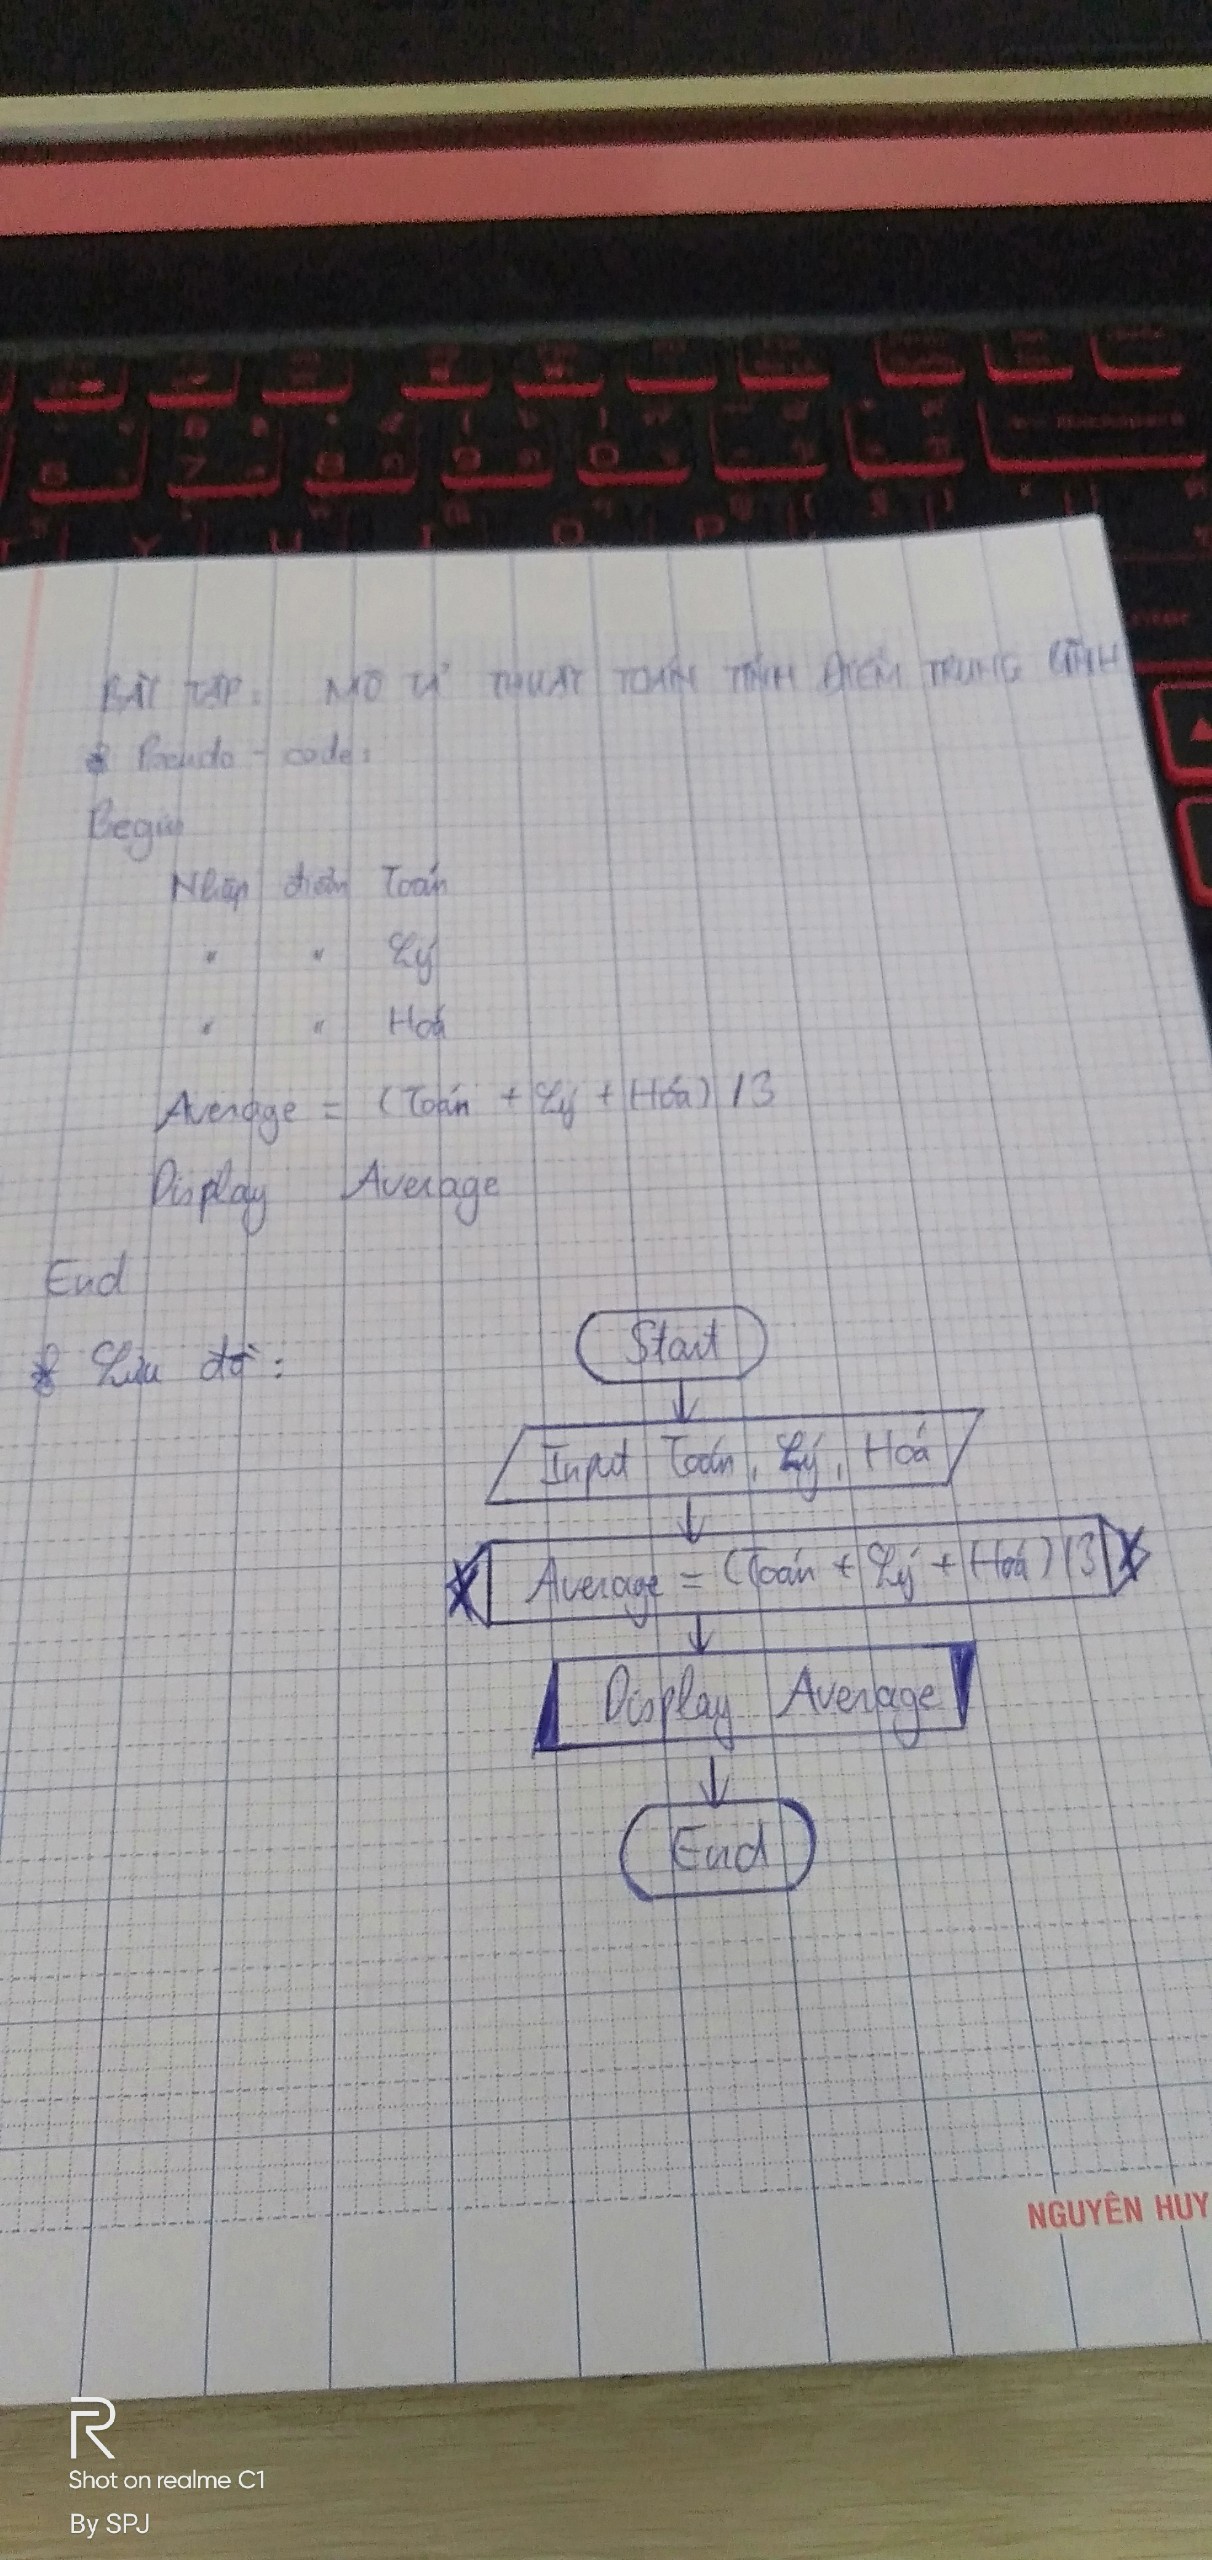 BÀI TẬP: MÔ TẢ THUẬT TOÁN TÍNH ĐIỂM TRUNG BÌNH
* Pseudo - code:
Begin
Nhập điểm Toán
" " Lý
" " Hoá
Average = (Toán + Lý + Hóa) / 3
Display Average
End
* Lưu đồ:
Start
Input Toán, Lý, Hoá
Average = (Toán + Lý + Hoá) / 3
Display Average
End
NGUYÊN HUY
R
Shot on realme C1
By SPJ